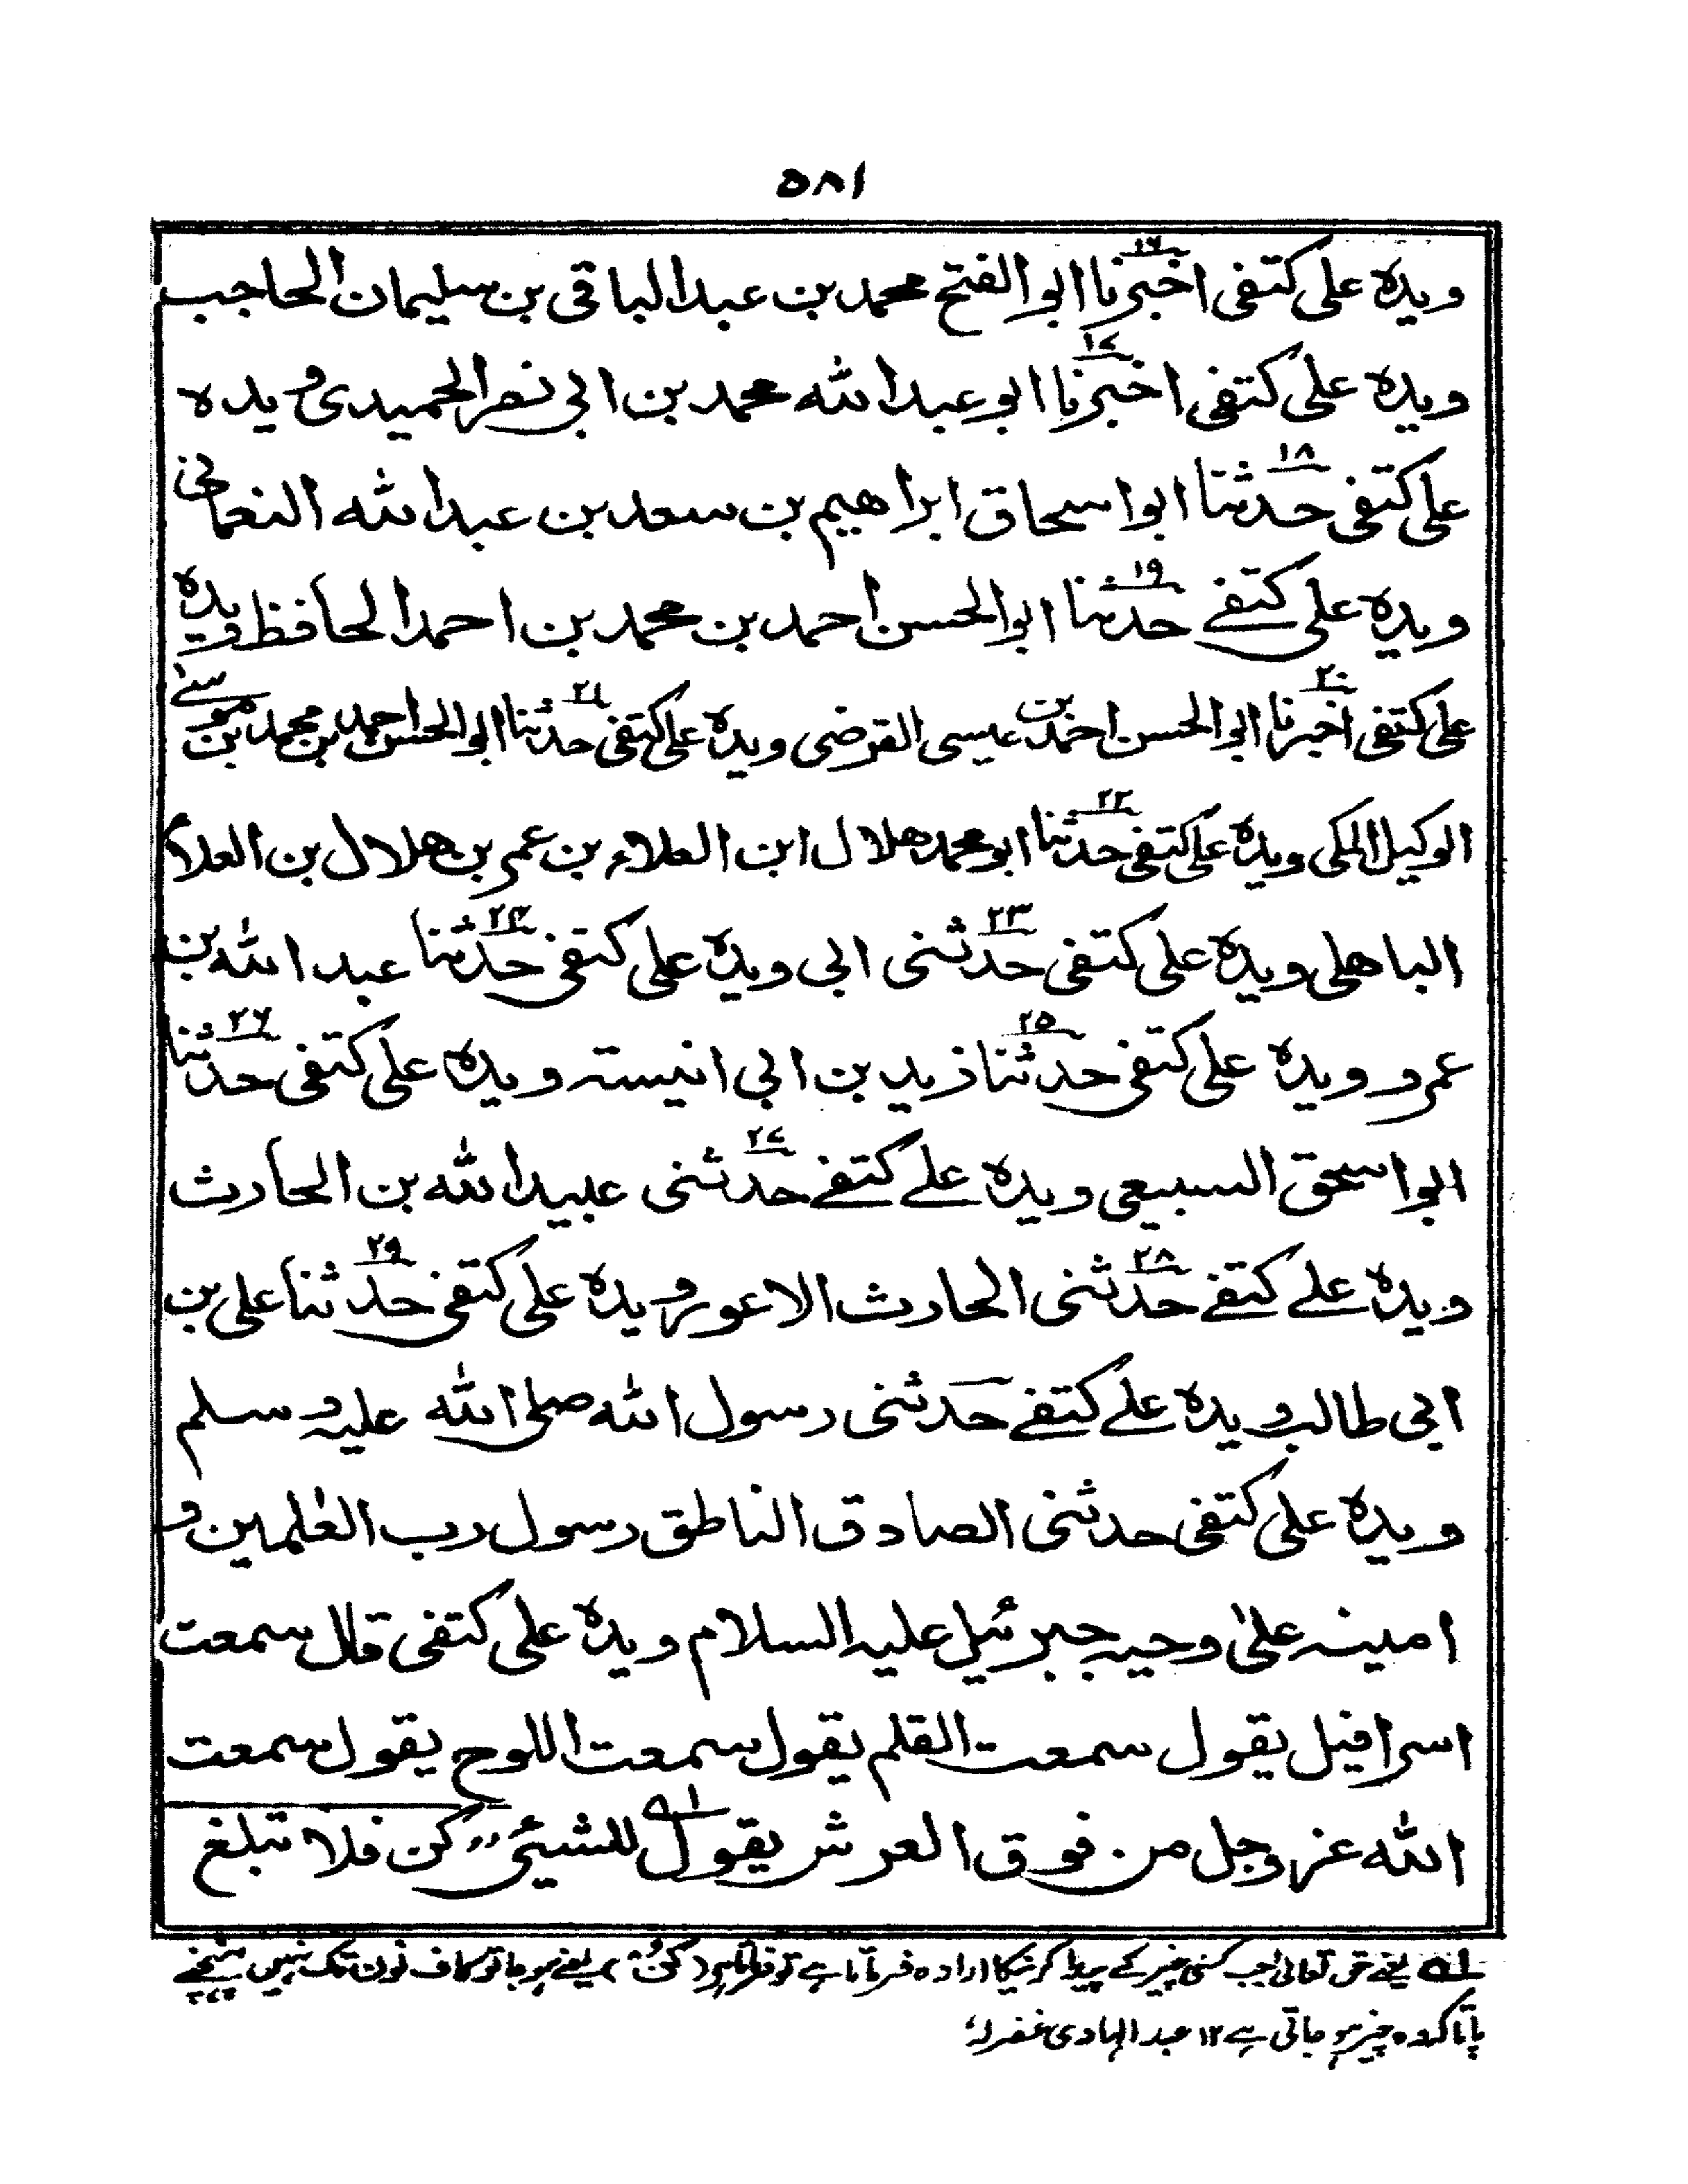 ٥٨١
ويده على كتفى اخبرنا ١٦ ابو الفتح محمد بن عبد الباقى بن سليمان الحاجب
ويده على كتفى اخبرنا ١٧ ابو عبد الله محمد بن ابى نصر الحميدى و يده
على كتفى حدثنا ١٨ ابو اسحاق ابراهيم بن سعد بن عبد الله النعمانى
ويده على كتفے حدثنا ١٩ ابو الحسن احمد بن محمد بن احمد الحافظ ويده
على كتفى اخبرنا ٢٠ ابو الحسن احمد بن عيسى القرضى ويده على كتفى حدثنا ٢١ ابو الحسن احمد بن محمد بن موسےٰ
الوكيل المكى ويده على كتفى حدثنا ٢٢ ابو محمد هلال ابن العلاء بن عمر بن هلال بن العلاء
الباهلى ويده على كتفى حدثنى ٢٣ ابى ويده على كتفى حدثنا ٢٤ عبد الله بن
عمرو ويده على كتفى حدثنا ٢٥ زيد بن ابى انيسته ويده على كتفى حدثنا ٢٦
ابو اسحق السبيعى ويده علے كتفے حدثنى ٢٧ عبيد الله بن الحارث
ويده علے كتفے حدثنى ٢٨ الحارث الاعور ويده على كتفى حدثنا ٢٩ على بن
ابى طالب ويده علے كتفے حدثنى رسول الله صلى الله عليه وسلم
ويده على كتفى حدثنى الصادق الناطق رسول رب العٰلمين و
امينه علىٰ وحيه جبرئيل عليه السلام ويده على كتفى قال سمعت
اسرافيل يقول سمعت القلم يقول سمعت اللوح يقول سمعت
الله عز وجل من فوق العرش يقول ٩١ للشيئ كن فلا تبلغ
٩١ یعنے حق تعالیٰ جب کسی چیز کے پیدا کرنیکا ارادہ فرماتا ہے تو فرماتا ہے (کُنْ) یعنے ہو جا تو کاف نون تک نہیں پہنچنے
پاتا کہ وہ چیز ہو جاتی ہے ١٢ عبد الہادی غفر لہٗ